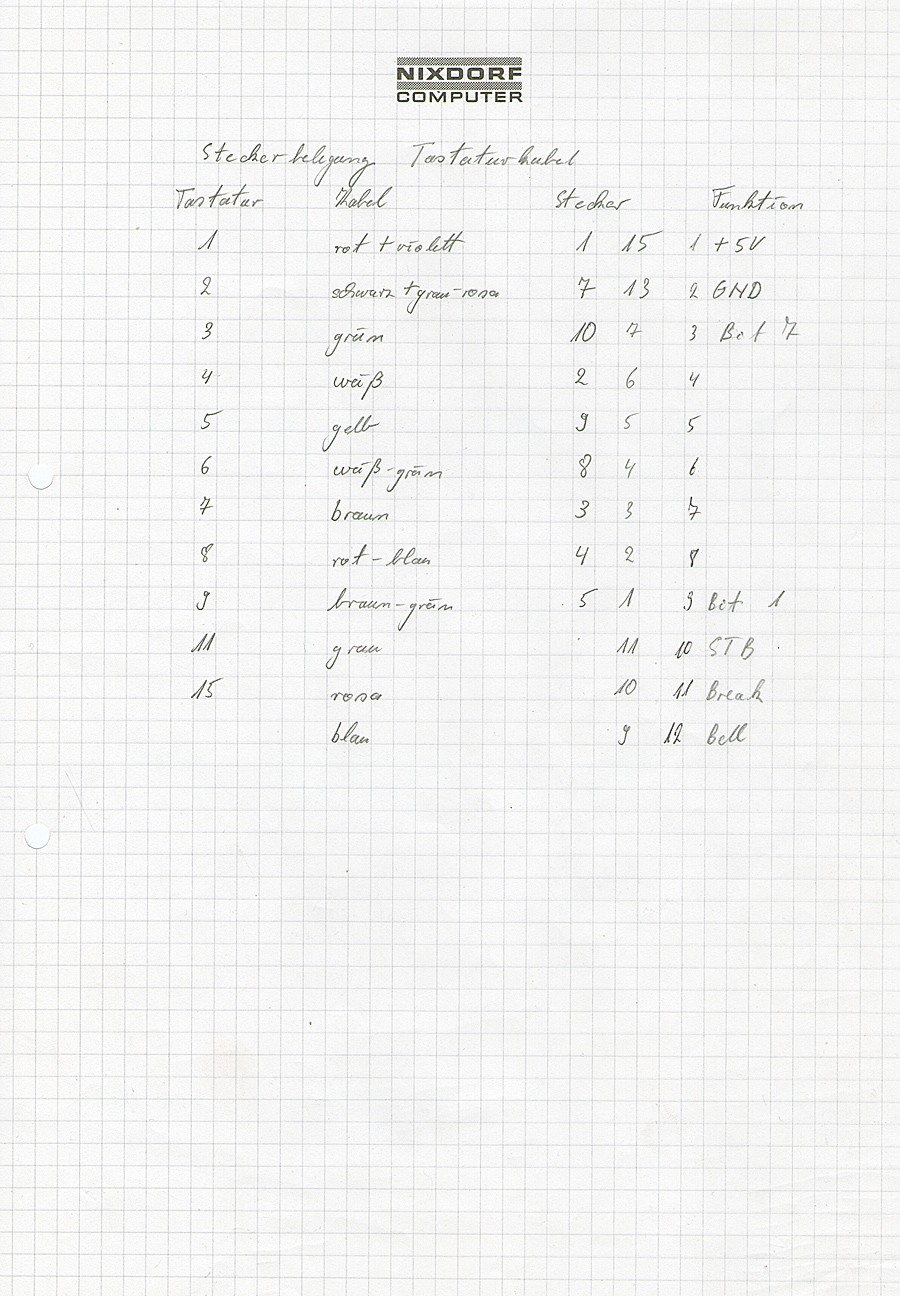 NIXDORF
COMPUTER
Steckerbelegung Tastaturkabel
Tastatur Kabel Stecker Funktion
1 rot + violett 1 15 1 + 5V
2 schwarz + grau-rosa 7 13 2 GND
3 grün 10 7 3 Bit 7
4 weiß 2 6 4
5 gelb 9 5 5
6 weiß-grün 8 4 6
7 braun 3 3 7
8 rot-blau 4 2 8
9 braun-grün 5 1 9 Bit 1
11 grau 11 10 STB
15 rosa 10 11 Break
blau 9 12 Bell